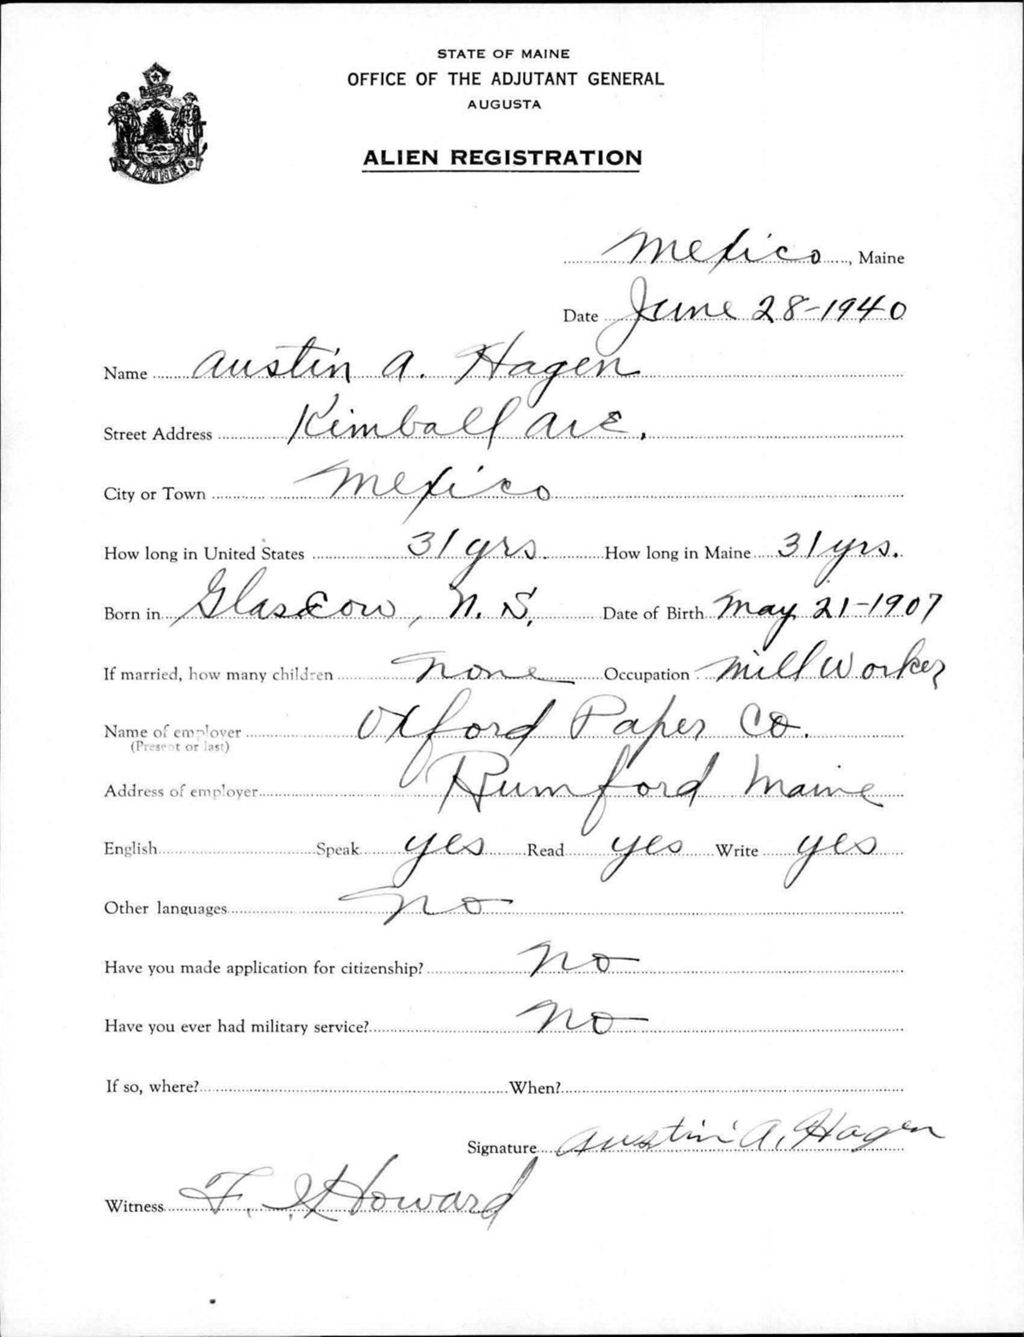 STATE OF MAINE
OFFICE OF THE ADJUTANT GENERAL
AUGUSTA
ALIEN REGISTRATION
MAINE
Mexico, Maine
Date June 28-1940
Name Austin A. Hagen
Street Address Kimball Ave.
City or Town Mexico
How long in United States 31 yrs. How long in Maine 31 yrs.
Born in Glascow, N. S. Date of Birth May 21-1907
If married, how many children None Occupation Mill Worker
Name of employer Oxford Paper Co.
(Present or last)
Address of employer Rumford Maine
English Speak yes Read yes Write yes
Other languages No
Have you made application for citizenship? No
Have you ever had military service? No
If so, where? When?
Signature Austin A. Hagen
Witness F. Howard